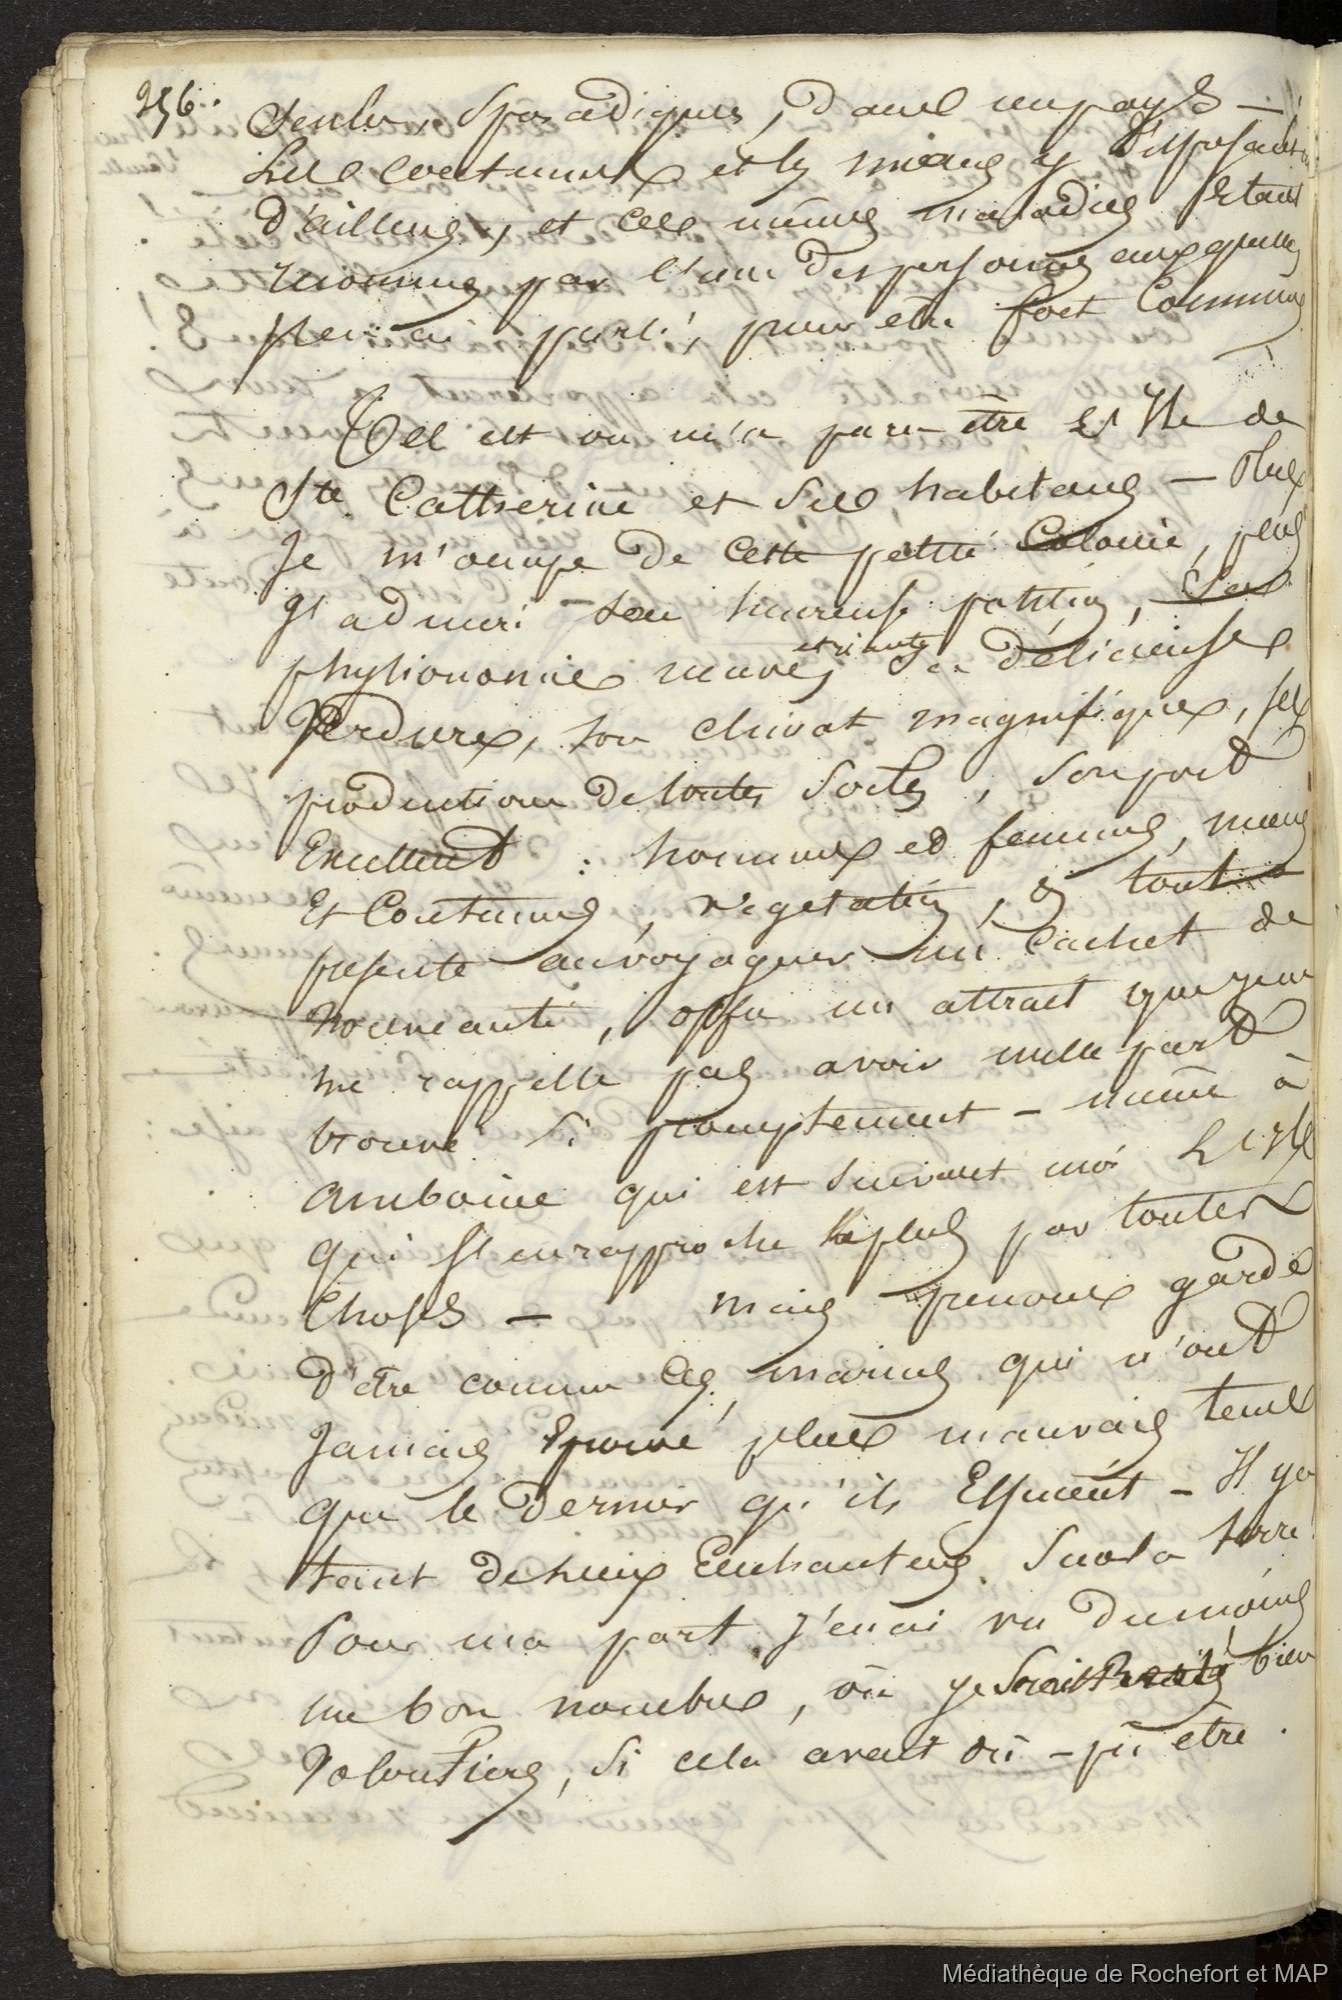 256.
seules, sporadiques, dans un pays —
les coutumes et les mœurs y
d'ailleurs, et ces mêmes maladies étant
reconnues par l'une des personnes auxquelles
j'en ai parlé, pour être fort communes
Tel est ou m'a paru être l'Ile de
Ste Catherine et ses habitans — Plus
Je m'occupe de cette petite Colonie, plus
J'admire son heureuse position, sa
physionomie neuve, et riante sa délicieuse
Verdure, son climat magnifique, ses
productions de toutes sortes, son port
Excellent : hommes et femmes, mœurs
Et Coutumes, végétation, tout
présente au voyageur un cachet de
nouveauté, offre un attrait que je
ne rappelle pas avoir nulle part
trouvé si promptement — même à
amboine qui est suivant moi L'Isle
qui s'en rapproche le plus par toutes
Choses — mais prenons garde
d'être comme ces marins qui n'ont
Jamais Eprouvé plus mauvais tems
que le dernier qu'ils Essuient — Il y a
tant de lieux Enchanteurs sur la terre!
Pour ma part j'en ai vu du moins
un bon nombre, où je serais Resté bien
Volontiers, si cela avait pû être.
Médiathèque de Rochefort et MAP